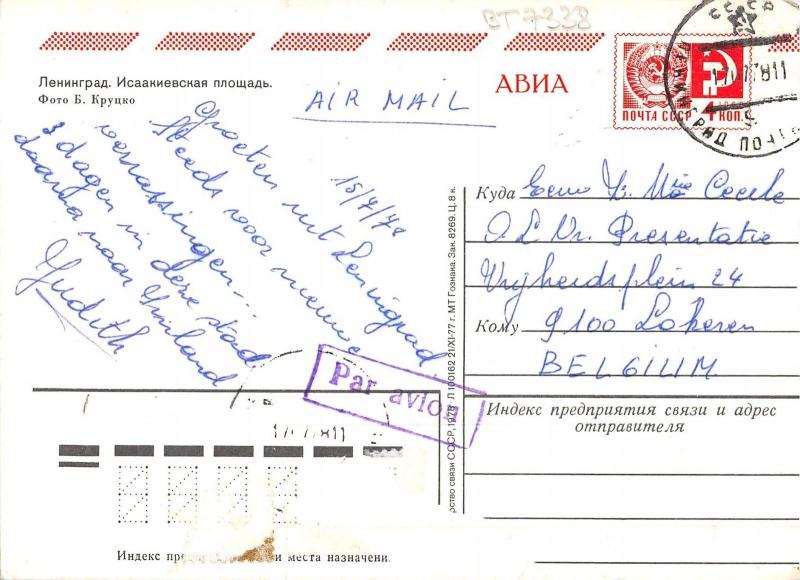 BT7338
Ленинград. Исаакиевская площадь.
Фото Б. Круцко
AIR MAIL
АВИА
ПОЧТА СССР 4 КОП.
СССР
ЛЕНИНГРАД ПОЧТ
15/7/78
Groeten uit Leningrad
Steeds voor nieuwe
verrassingen...
3 dagen in deze stad
daarna naar Finland
Judith
Куда
O.L.Vr. Presentatie
Vrijheidsplein 24
Кому 9100 Lokeren
BELGIUM
Par avion
Индекс предприятия связи и адрес
отправителя
рство связи СССР, 1978. Л 100162 21/XI-77 г. МТ Гознака. Зак. 8269. Ц. 8 к.
Индекс пре и места назначени